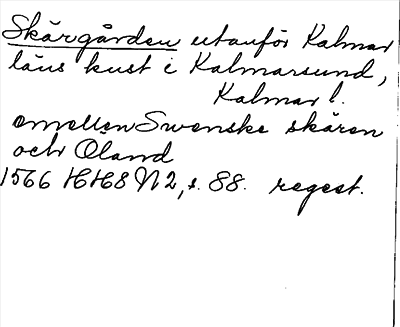 Skärgården utanför Kalmar
läns kust i Kalmarsund,
Kalmar l.
emellen Swenske skären
och Öland
1566 HH68 N2, s. 88. regest.